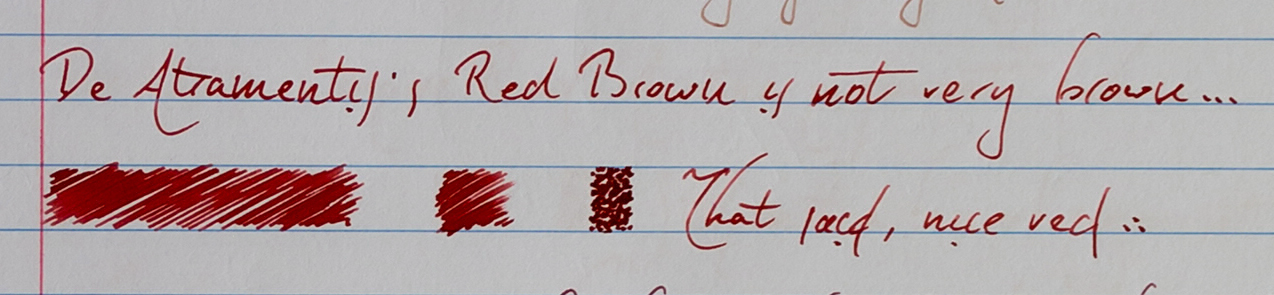 De Atramentis's Red Brown is not very brown...
That said, nice red :